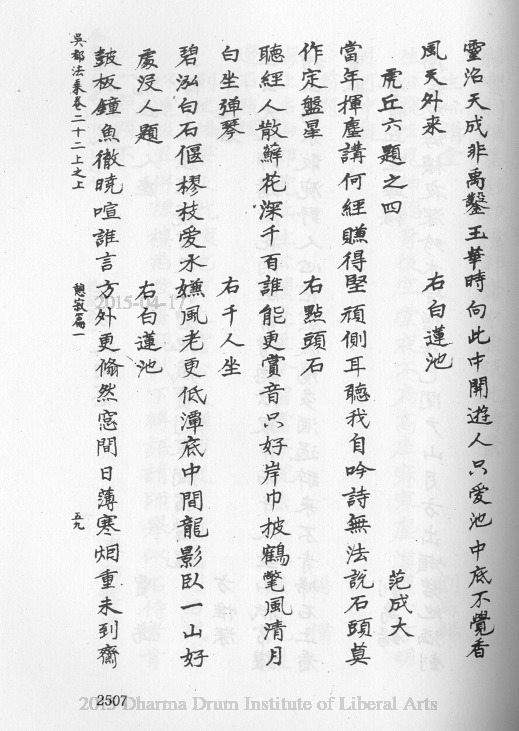 靈沼天成非禹鑿玉華時向此中開遊人只愛池中底不覺香
風天外来　　　　　　　右白蓮池
虎丘六題之四　　　　　　　　　　　范成大
當年揮麈講何經賺得堅頑側耳聽我自吟詩無法說石頭莫
作定盤星　　　　　　　右點頭石
聽經人散蘚花深千百誰能更賞音只好岸巾披鶴氅風清月
白坐弹琴　　　　　　　右千人坐
碧泓白石偃樛枝愛水嫌風老更低潭底中間龍影臥一山好
處没人題　　　　　　　右白蓮池
皷板鐘魚徹曉喧誰言方外更翛然窓間日薄寒烟重未到齋
吳都法乘卷二十二上之上　憩寂篇一　五九
2507
2015-04-17
2015 Dharma Drum Institute of Liberal Arts